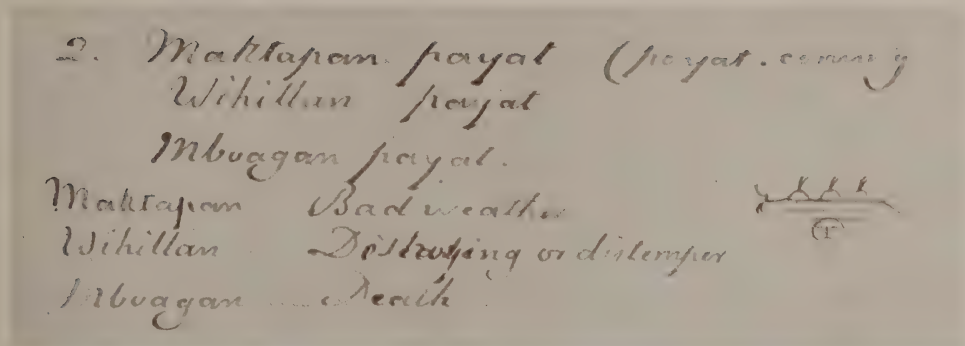 2. Maktapan payat (payat. coming
Wihillan payat
Mboagan payat.
Maktapan Bad weather
Wihillan Distroying or distemper
Mboagan .... Death